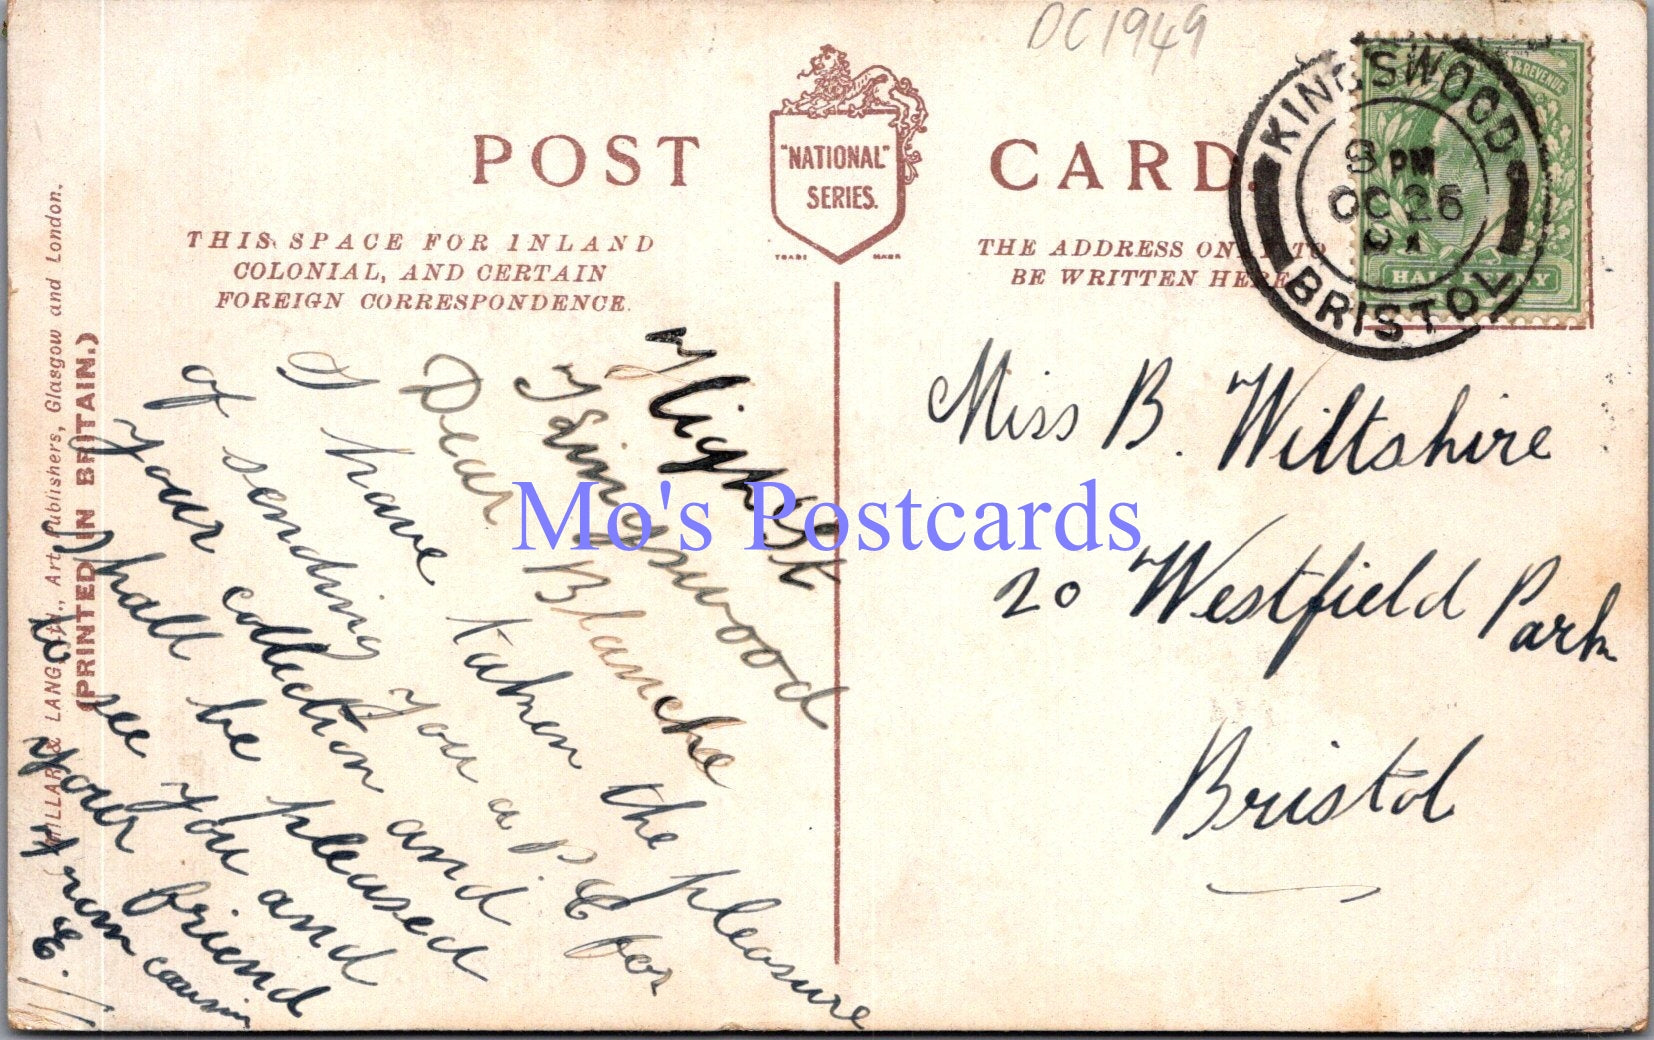 DC1949
POST CARD.
"NATIONAL"
SERIES.
TRADE MARK
THIS SPACE FOR INLAND
COLONIAL, AND CERTAIN
FOREIGN CORRESPONDENCE.
THE ADDRESS ONLY TO
BE WRITTEN HERE
KINGSWOOD
8 PM
OC 26
BRISTOL
& REVENUE
HALFPENNY
MILLAR & LANG, LTD., Art Publishers, Glasgow and London.
(PRINTED IN BRITAIN.)
High St
Kingswood
Dear Blanche
I have taken the pleasure
of sending you a P C for
your collection and
shall be pleased
to see you and
your friend
from cousin
E.
Miss B. Wiltshire
20 Westfield Park
Bristol
Mo's Postcards